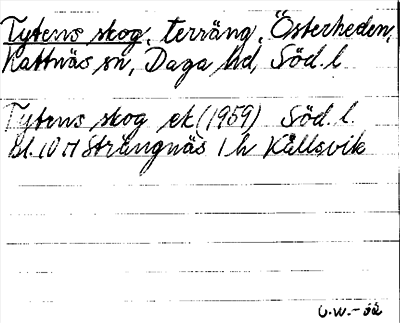 Tytens skog, terräng, Österheden,
Kattnäs sn, Daga hd, Söd. l.
Tytens skog ek (1959) Söd. l.
Bl. 10 H Strängnäs 1 h Källsvik
U.W.-62